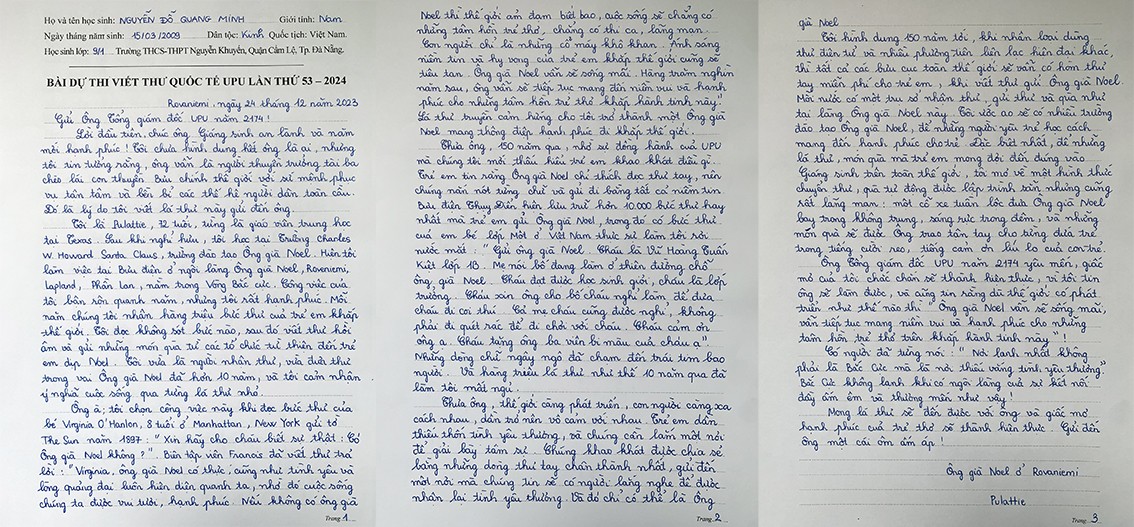 Họ và tên học sinh: NGUYỄN ĐỖ QUANG MINH Giới tính: Nam
Ngày tháng năm sinh: 15/03/2009 Dân tộc: Kinh Quốc tịch: Việt Nam.
Học sinh lớp: 9/1 Trường THCS-THPT Nguyễn Khuyến, Quận Cẩm Lệ, Tp. Đà Nẵng.
BÀI DỰ THI VIẾT THƯ QUỐC TẾ UPU LẦN THỨ 53 – 2024
Rovaniemi, ngày 24 tháng 12 năm 2023
Gửi Ông Tổng giám đốc UPU năm 2174!
Lời đầu tiên, chúc ông Giáng sinh an lành và năm
mới hạnh phúc! Tôi chưa hình dung hết ông là ai, nhưng
tôi tin tưởng rằng, ông vẫn là người thuyền trưởng tài ba
chèo lái con thuyền Bưu chính thế giới với sứ mệnh phục
vụ tận tâm và bền bỉ các thế hệ người dân toàn cầu.
Đó là lý do tôi viết lá thư này gửi đến ông.
Tôi là Pulattie, 72 tuổi, từng là giáo viên trung học
tại Texas. Sau khi nghỉ hưu, tôi học tại Trường Charles
W. Howard Santa Claus, trường đào tạo Ông già Noel. Hiện tôi
làm việc tại Bưu điện ở ngôi làng Ông già Noel, Rovaniemi,
Lapland, Phần Lan, nằm trong Vòng Bắc cực. Công việc của
tôi bận rộn quanh năm, nhưng tôi rất hạnh phúc. Mỗi
năm chúng tôi nhận hàng triệu bức thư của trẻ em khắp
thế giới. Tôi đọc không sót bức nào, sau đó viết thư hồi
âm và gửi những món quà từ các tổ chức từ thiện đến trẻ
em dịp Noel. Tôi vừa là người nhận thư, vừa đưa thư
trong vai Ông già Noel đã hơn 10 năm, và tôi cảm nhận
ý nghĩa cuộc sống qua từng lá thư nhỏ.
Ông ạ; tôi chọn công việc này khi đọc bức thư của
bé Virginia O'Hanlon, 8 tuổi ở Manhattan, New York gửi tờ
The Sun năm 1897: "Xin hãy cho cháu biết sự thật: Có
Ông già Noel không?". Biên tập viên Francis đã viết thư trả
lời: "Virginia, ông già Noel có thực, cũng như tình yêu và
lòng quảng đại luôn hiện diện quanh ta, nhờ đó cuộc sống
chúng ta được vui tươi, hạnh phúc. Nếu không có ông già
Trang: 1
Noel thì thế giới ảm đạm biết bao, cuộc sống sẽ chẳng có
những tâm hồn trẻ thơ, chẳng có thi ca, lãng mạn.
Con người chỉ là những cỗ máy khô khan. Ánh sáng
niềm tin và hy vọng của trẻ em khắp thế giới cũng sẽ
tiêu tan. Ông già Noel vẫn sẽ sống mãi. Hàng trăm nghìn
năm sau, ông vẫn sẽ tiếp tục mang đến niềm vui và hạnh
phúc cho những tâm hồn trẻ thơ khắp hành tinh này".
Lá thư truyền cảm hứng cho tôi trở thành một Ông già
Noel mang thông điệp hạnh phúc đi khắp thế giới.
Thưa ông, 150 năm qua, nhờ sự đồng hành của UPU
mà chúng tôi mới thấu hiểu trẻ em khao khát điều gì.
Trẻ em tin rằng Ông già Noel chỉ thích đọc thư tay, nên
chúng nắn nót từng chữ và gửi đi bằng tất cả niềm tin.
Bưu điện Thụy Điển hiện lưu trữ hơn 10.000 bức thư hay
nhất mà trẻ em gửi Ông già Noel, trong đó có bức thư
của em bé lớp Một ở Việt Nam thực sự làm tôi rơi
nước mắt: "Gửi ông già Noel. Cháu là Vũ Hoàng Tuấn
Kiệt lớp 1B. Mẹ nói bố đang làm ở thiên đường chỗ
ông già Noel. Cháu đạt được học sinh giỏi, cháu là lớp
trưởng. Cháu xin ông cho bố cháu nghỉ làm, để đưa
cháu đi coi thú. Cả mẹ cháu cũng được nghỉ, không
phải đi quét rác để đi chơi với cháu. Cháu cảm ơn
ông ạ. Cháu tặng ông ba viên bi màu của cháu ạ".
Những dòng chữ ngây ngô đã chạm đến trái tim bao
người. Và hàng triệu lá thư như thế 10 năm qua đã
làm tôi mất ngủ.
Thưa ông, thế giới càng phát triển, con người càng xa
cách nhau, dần trở nên vô cảm với nhau. Trẻ em dần
thiếu thốn tình yêu thương, và chúng cần lắm một nơi
để giải bày tâm sự. Chúng khao khát được chia sẻ
bằng những dòng thư tay chân thành nhất, gửi đến
một nơi mà chúng tin sẽ có người lắng nghe để được
nhận lại tình yêu thương. Và đó chỉ có thể là Ông
Trang: 2
già Noel
Tôi hình dung 150 năm tới, khi nhân loại dùng
thư điện tử và nhiều phương tiện liên lạc hiện đại khác,
thì tất cả các bưu cục toàn thế giới sẽ vẫn có hòm thư
tay miễn phí cho trẻ em, khi viết thư gửi Ông già Noel.
Mỗi nước có một trụ sở nhận thư, gửi thư và quà như
tại làng Ông già Noel này. Tôi ước ao sẽ có nhiều trường
đào tạo Ông già Noel, để những người yêu trẻ học cách
mang đến hạnh phúc cho trẻ. Đặc biệt nhất, để những
lá thư, món quà mà trẻ em mong đợi đến đúng vào
Giáng sinh trên toàn thế giới, tôi mơ về một hình thức
chuyển thư, quà tự động được lập trình sẵn nhưng cũng
rất lãng mạn: một cỗ xe tuần lộc đưa Ông già Noel
bay trong không trung, sáng rực trong đêm, và những
món quà sẽ được Ông trao tận tay cho từng đứa trẻ
trong tiếng cười reo, tiếng cảm ơn líu lo của con trẻ.
Ông Tổng giám đốc UPU năm 2174 yêu mến, giấc
mơ của tôi chắc chắn sẽ thành hiện thực, vì tôi tin
ông sẽ làm được, và cũng tin rằng dù thế giới có phát
triển như thế nào thì "Ông già Noel vẫn sẽ sống mãi,
vẫn tiếp tục mang niềm vui và hạnh phúc cho những
tâm hồn trẻ thơ trên khắp hành tinh này"!
Có người đã từng nói: "Nơi lạnh nhất không
phải là Bắc Cực mà là nơi thiếu vắng tình yêu thương."
Bắc Cực không lạnh khi có ngôi làng của sự kết nối
đầy ấm êm và thương mến như vậy!
Mong lá thư sẽ đến được với ông và giấc mơ
hạnh phúc của trẻ thơ sẽ thành hiện thực. Gửi đến
ông một cái ôm ấm áp!
Ông già Noel ở Rovaniemi
Pulattie
Trang: 3